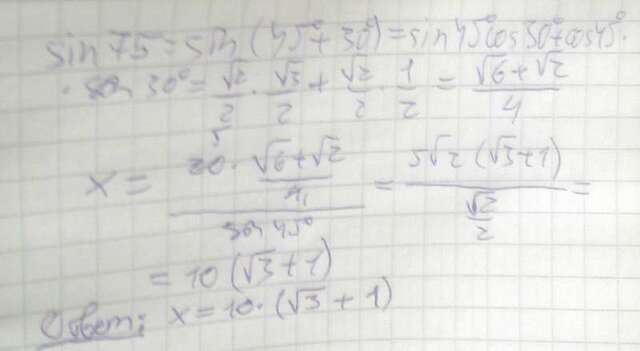 sin 75 = sin (45° + 30°) = sin 45° cos 30° + cos 45° ·
· sin 30° = √2/2 · √3/2 + √2/2 · 1/2 = (√6 + √2)/4
x = (20 · (√6 + √2)/4)/(sin 45°) = (5√2 (√3 + 1))/(√2/2) =
= 10 (√3 + 1)
Ответ: x = 10 · (√3 + 1)